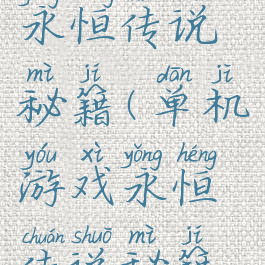 永恒传说
mì jí dān jī
秘籍(单机
yóu xì yǒng héng
游戏永恒
chuán shuō mì jí
传说秘籍